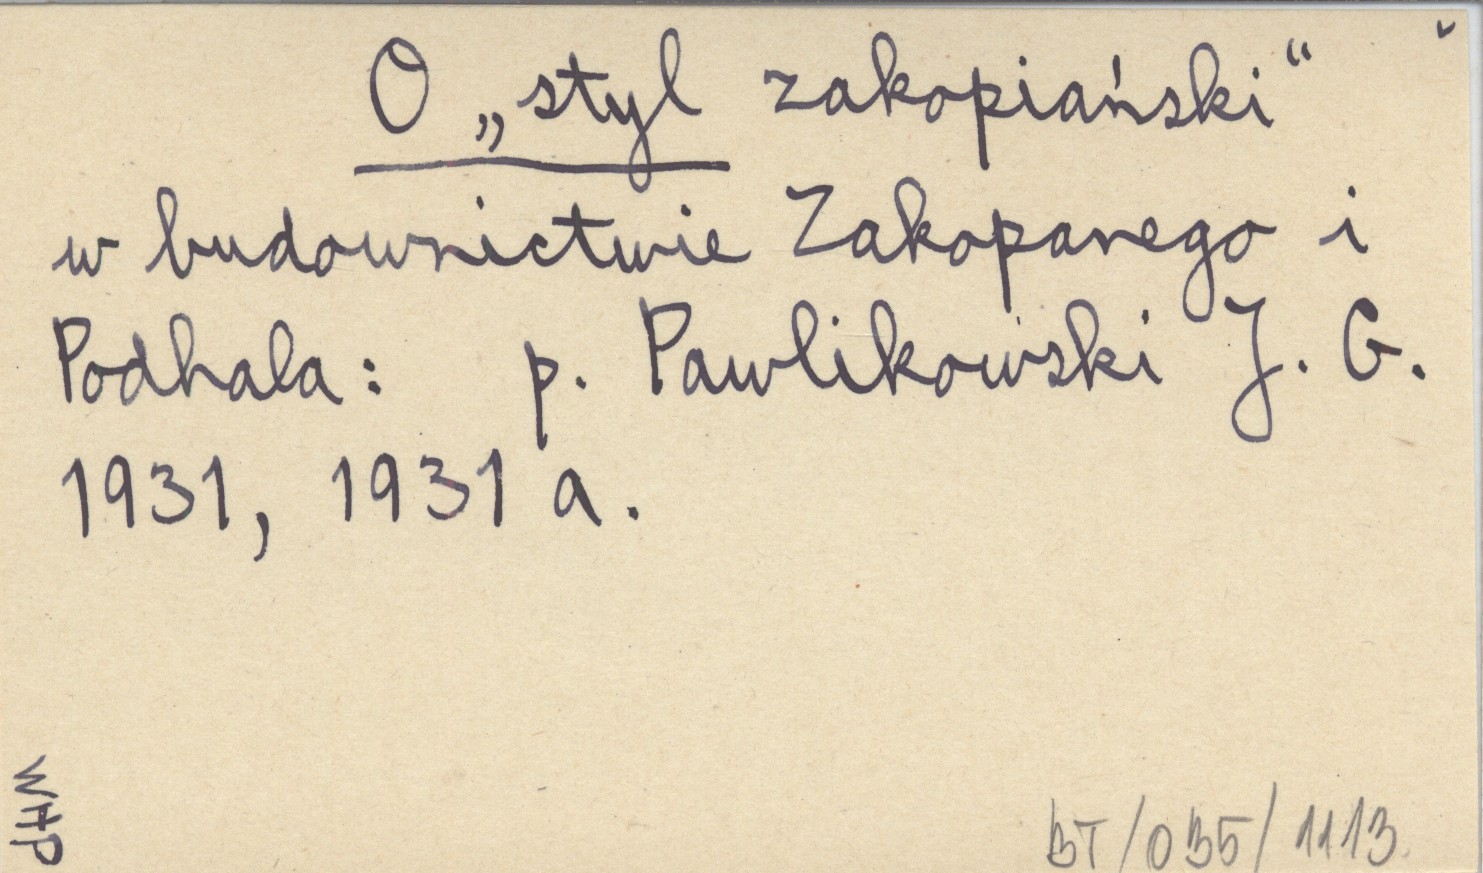 O „styl zakopiański“
w budownictwie Zakopanego i
Podhala: p. Pawlikowski J. G.
1931, 1931 a.
WHP
BT/035/1113.